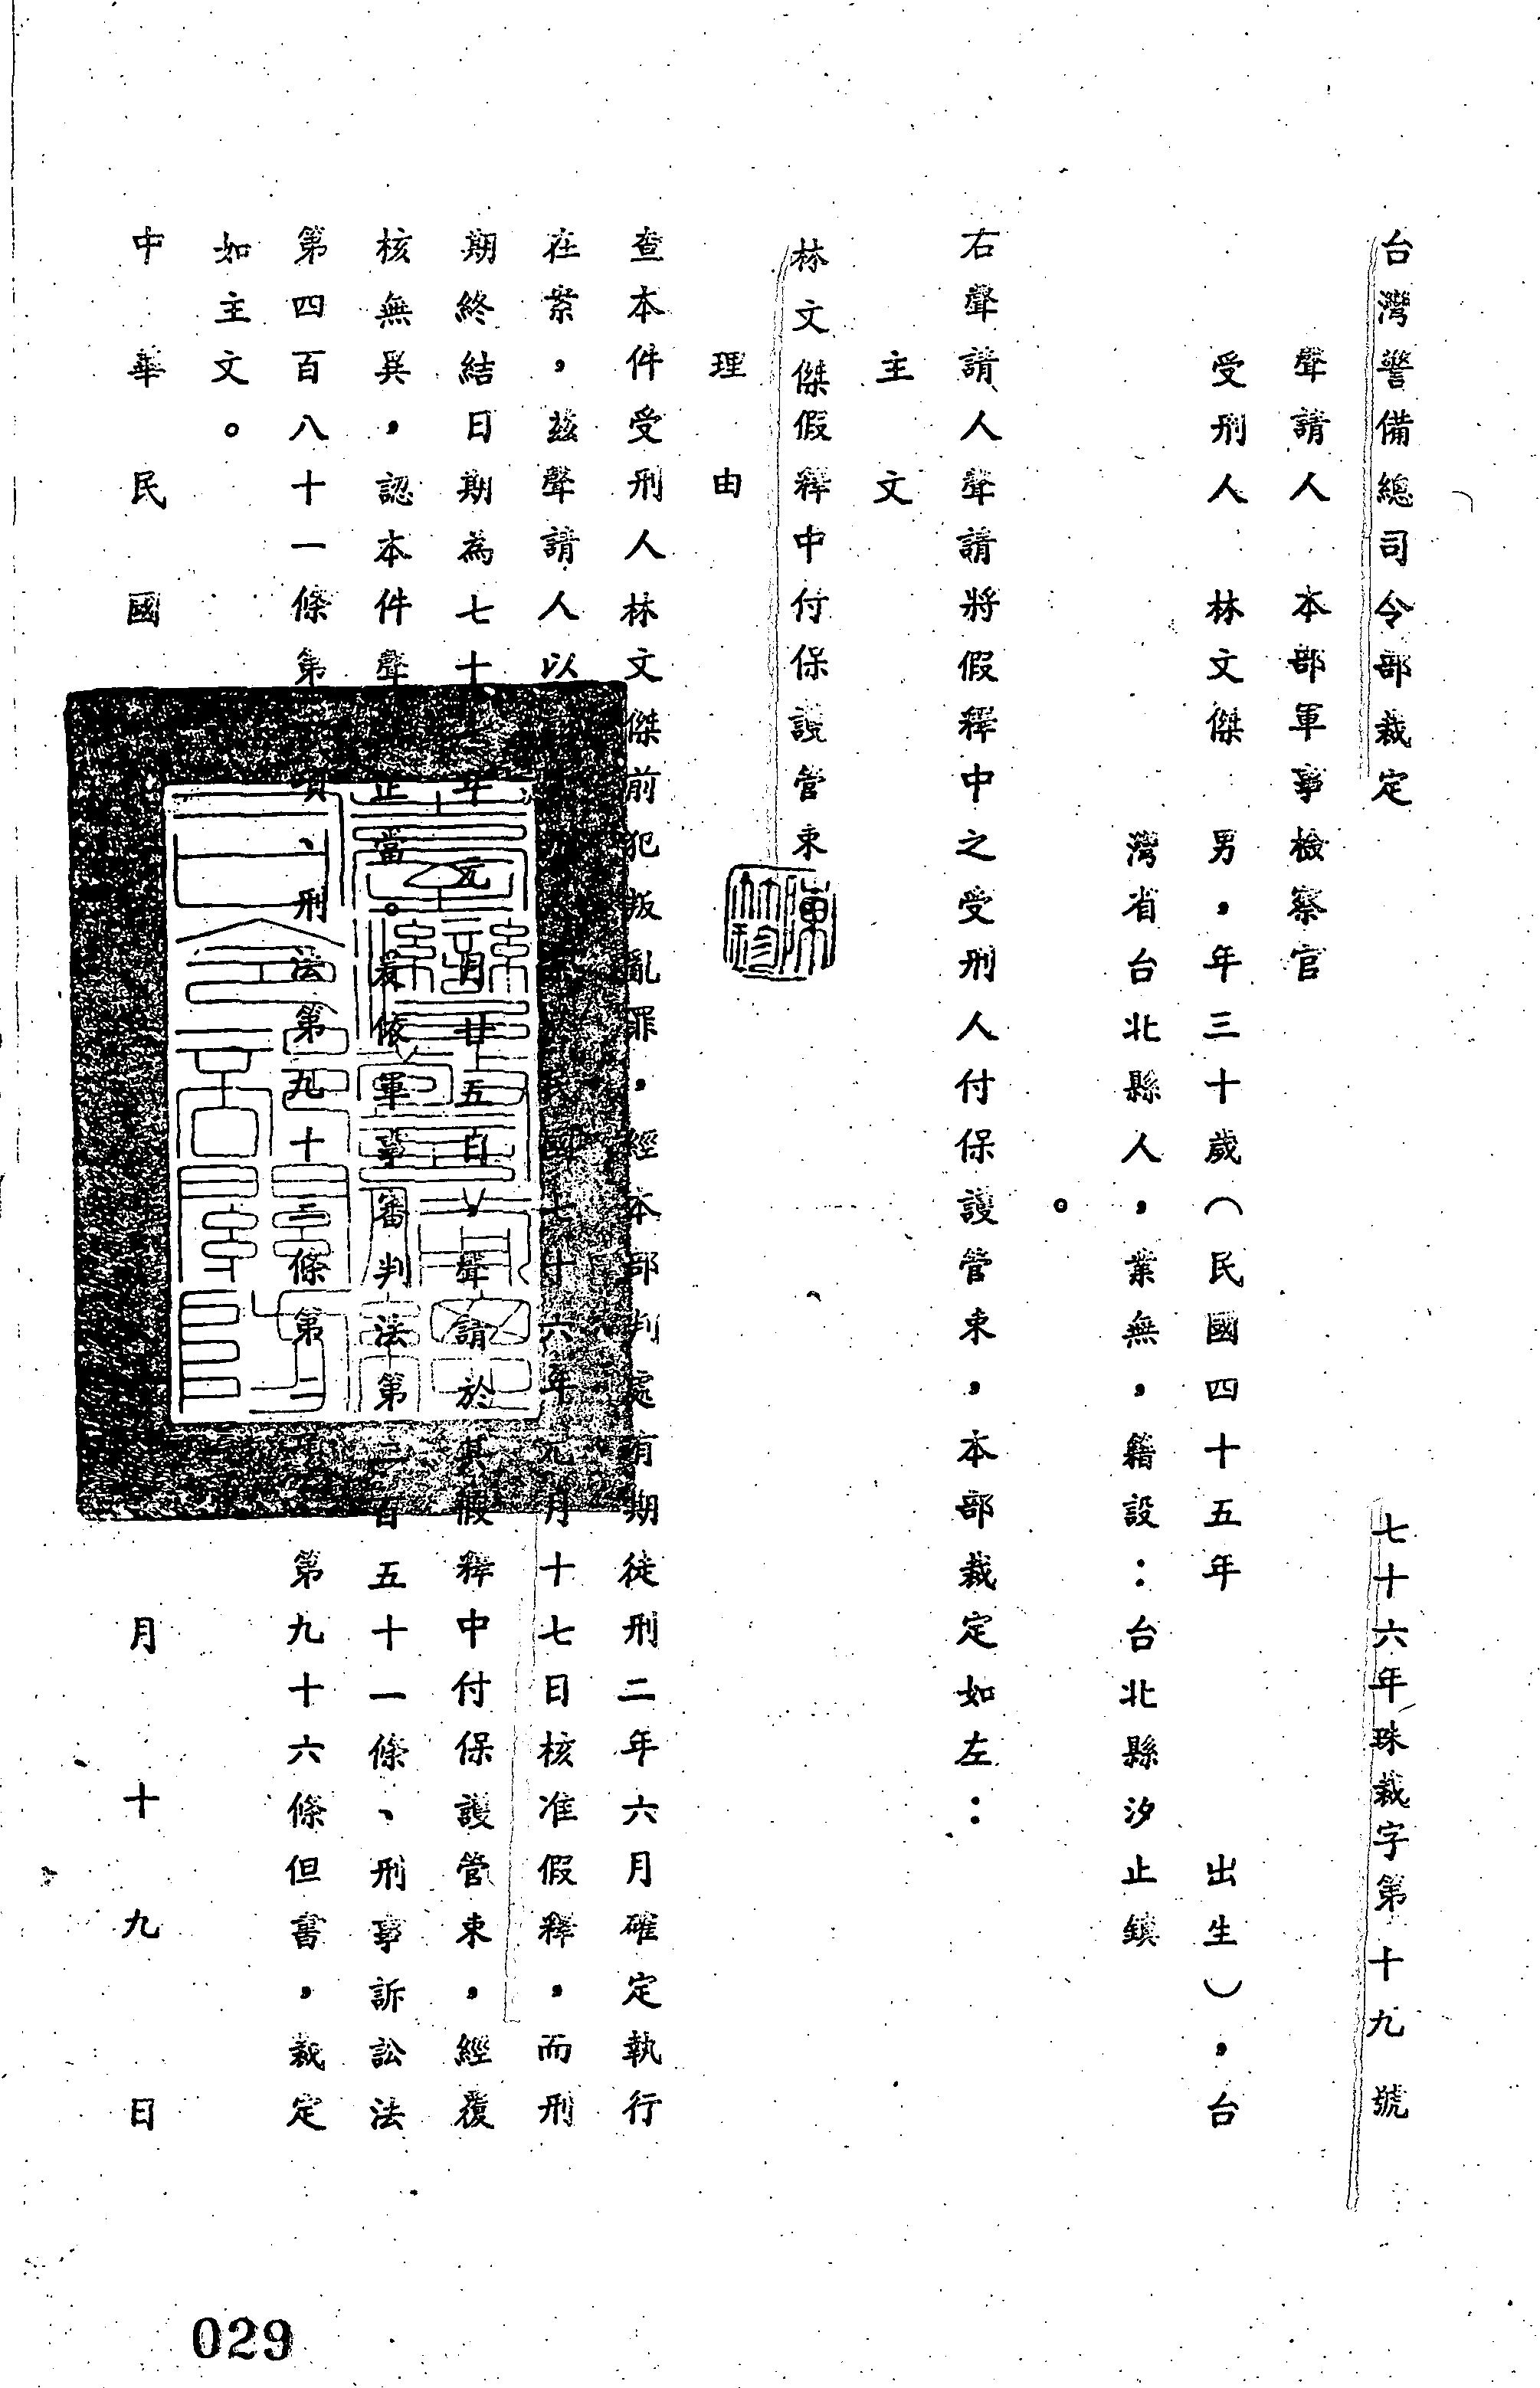 台灣警備總司令部裁定　七十六年珠裁字第十九號
聲請人　本部軍事檢察官
受刑人　林文傑　男，年三十歲（民國四十五年　出生），台
灣省台北縣人，業無，籍設：台北縣汐止鎮
。
右聲請人聲請將假釋中之受刑人付保護管束，本部裁定如左：
主文
林文傑假釋中付保護管束
理由
查本件受刑人林文傑前犯叛亂罪，經本部判處有期徒刑二年六月確定執行
在案，茲聲請人以民國七十六年元月十七日核准假釋，而刑
期終結日期為七十年元月廿五日，聲請於其假釋中付保護管束，經覆
核無異，認本件聲正當。爰依軍事審判法第二百五十一條、刑事訴訟法
第四百八十一條第項、刑法第九十三條第二第九十六條但書，裁定
如主文。
中華民國　月十九日
029